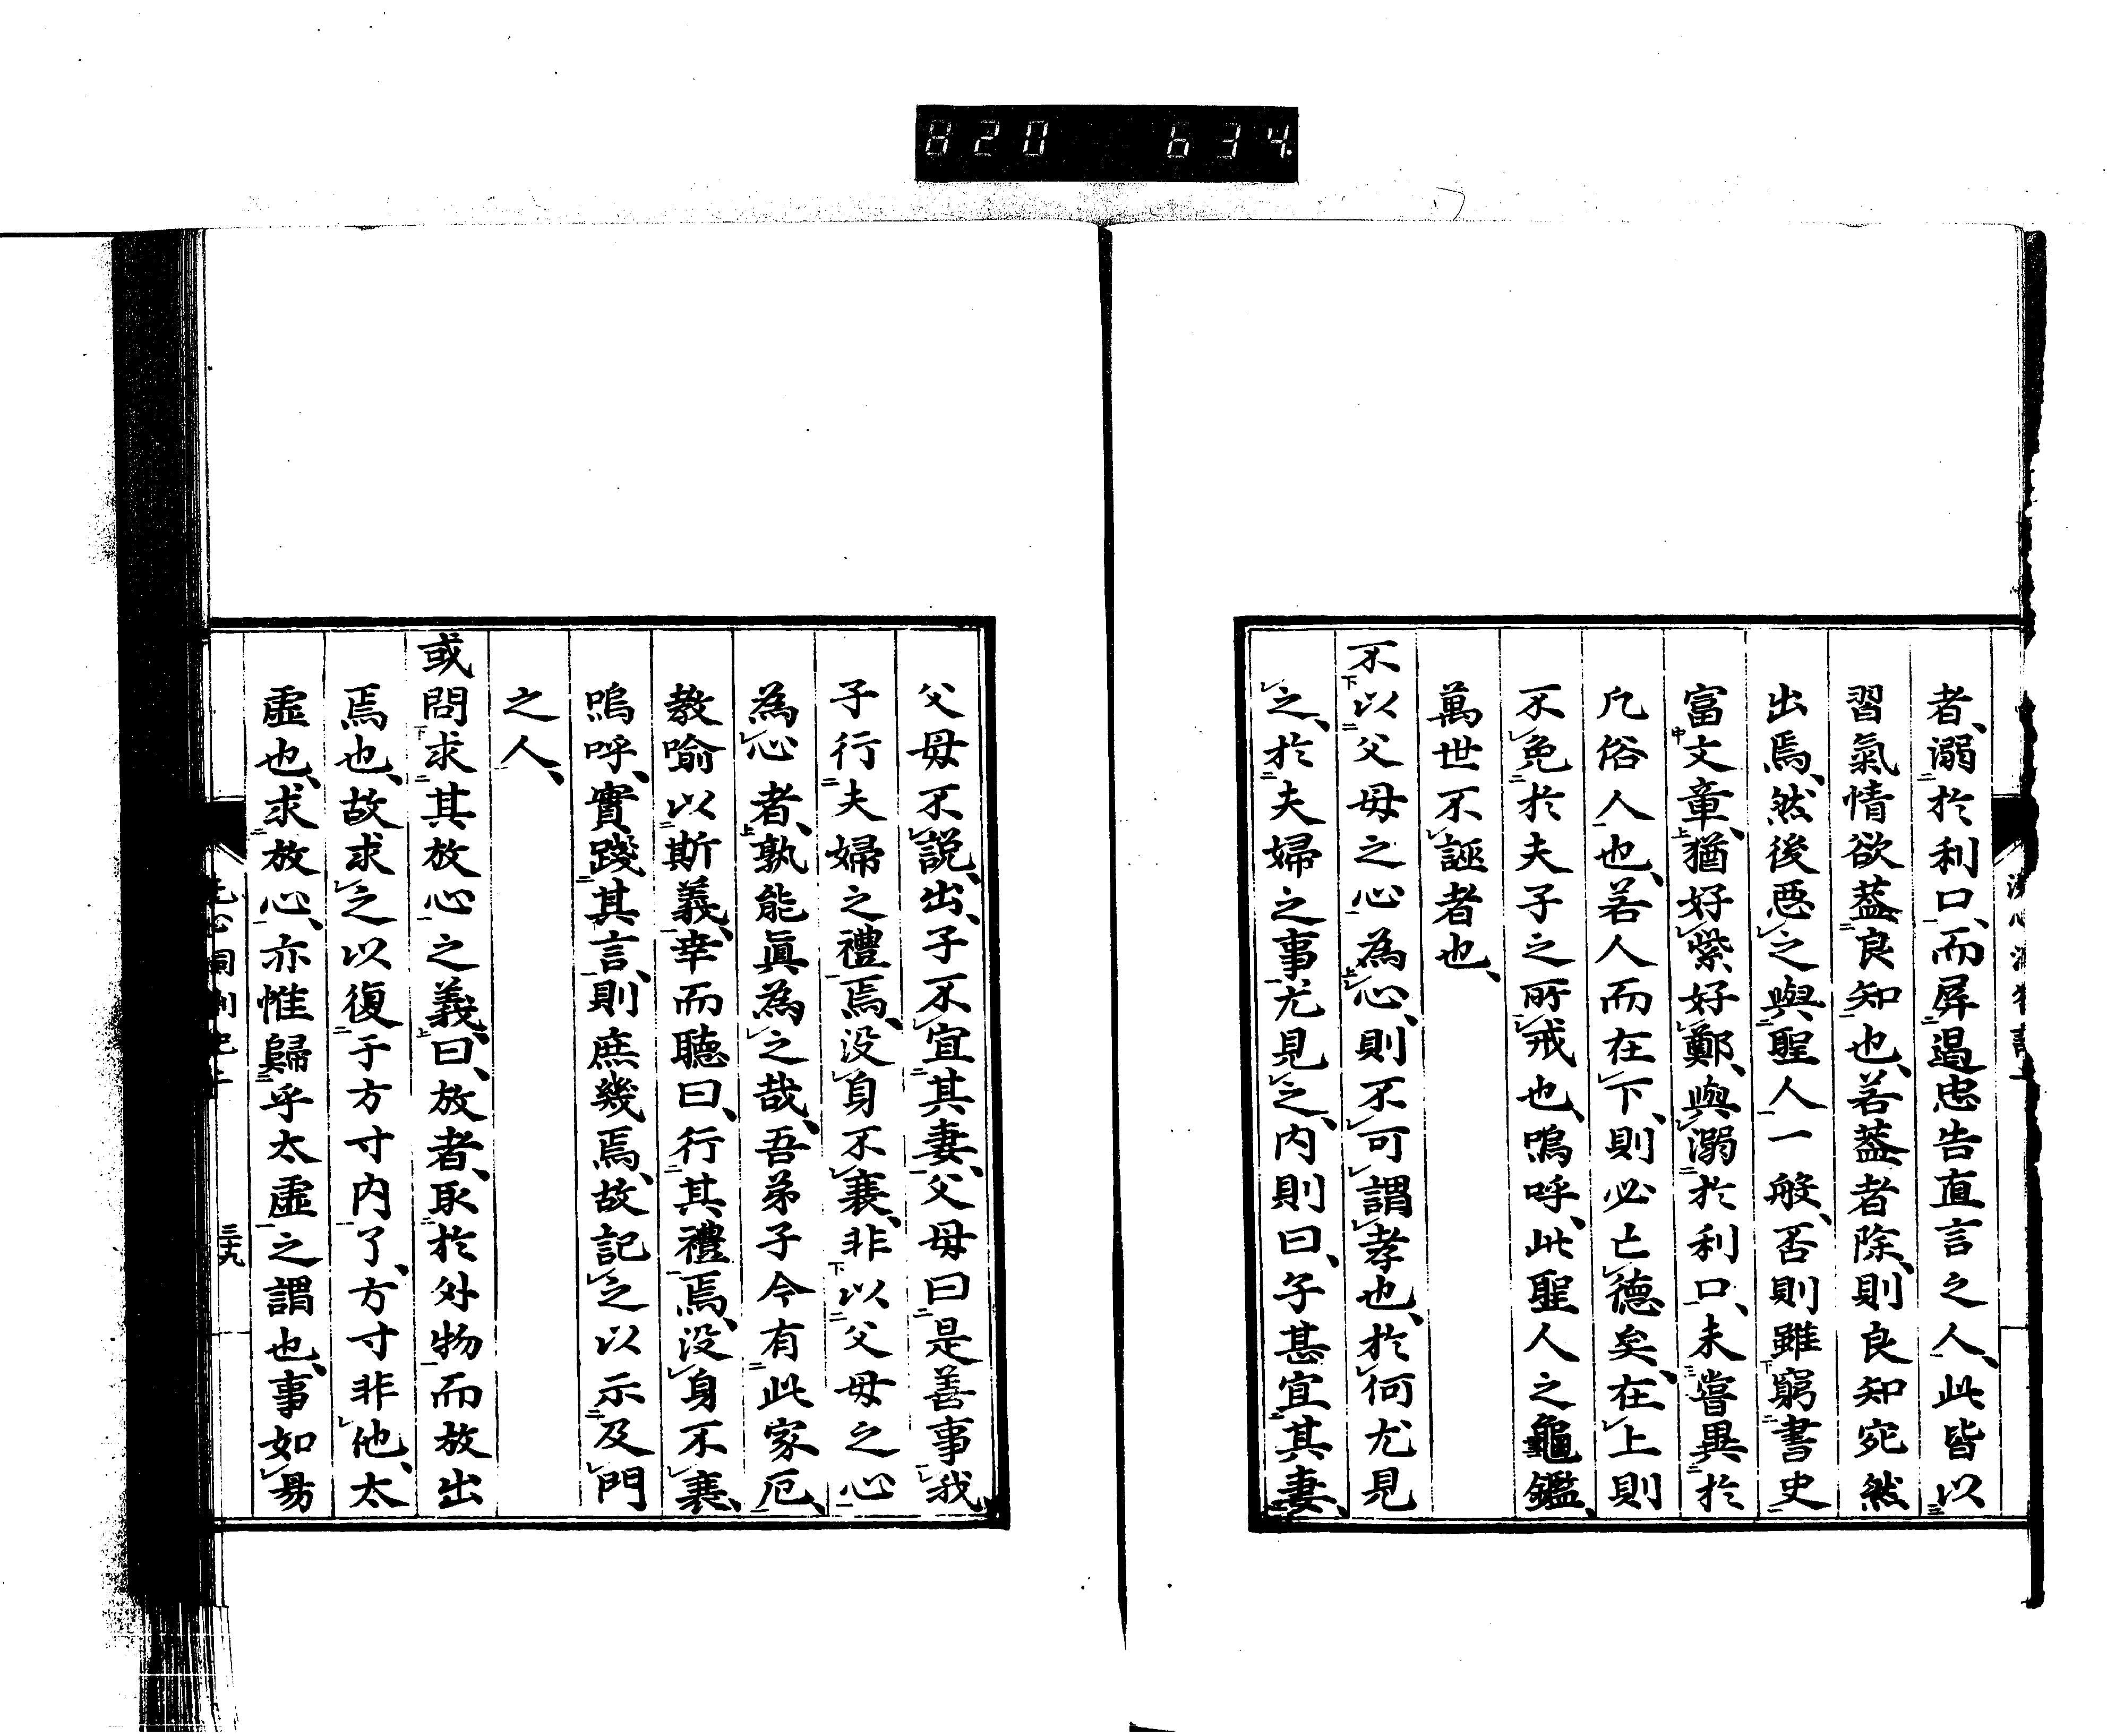 820 634
者、溺於利口、而屏遏忠告直言之人、此皆以
習氣情欲蓋良知也、若蓋者除、則良知宛然
出焉、然後惡之與聖人一般、否則雖窮書史
富文章、猶好紫好鄭、與溺於利口、未嘗異於
凡俗人也、若人而在下、則必亡德矣、在上則
不免於夫子之所戒也、嗚呼、此聖人之龜鑑、
萬世不誣者也、
不以父母之心為心、則不可謂孝也、於何尤見
之、於夫婦之事尤見之、内則曰、子甚宜其妻、
父母不説、出、子不宜其妻、父母曰是善事我
子行夫婦之禮焉、没身不衰、非以父母之心
為心者、孰能眞為之哉、吾弟子今有此家厄、
教喩以斯義、幸而聽曰、行其禮焉、没身不衰、
嗚呼、實踐其言、則庶幾焉、故記之以示及門
之人、
或問求其放心之義、曰、放者、取於外物而放出
焉也、故求之以復于方寸内了、方寸非他、太
虛也、求放心、亦惟歸乎太虛之謂也、事如易
三十九